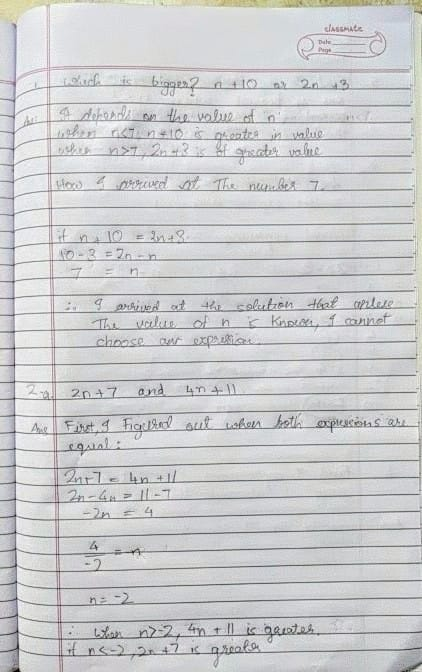 classmate
Date
Page
1. Which is bigger? n + 10 or 2n + 3
Ans: It depends on the value of n
when n<7, n+10 is greater in value
when n>7, 2n+3 is of greater value
How I arrived at The number 7.
if n + 10 = 2n+3
10-3 = 2n-n
7 = n
∴ I arrived at the solution that
The value of n is known, I cannot
choose an expression.
2. a. 2n+7 and 4n+11
Ans First, I Figured out when both expressions are
equal:
2n+7 = 4n+11
2n-4n = 11-7
-2n = 4
4/-2 = n
n = -2
∴ when n>-2, 4n+11 is greater.
if n<-2, 2n+7 is greater